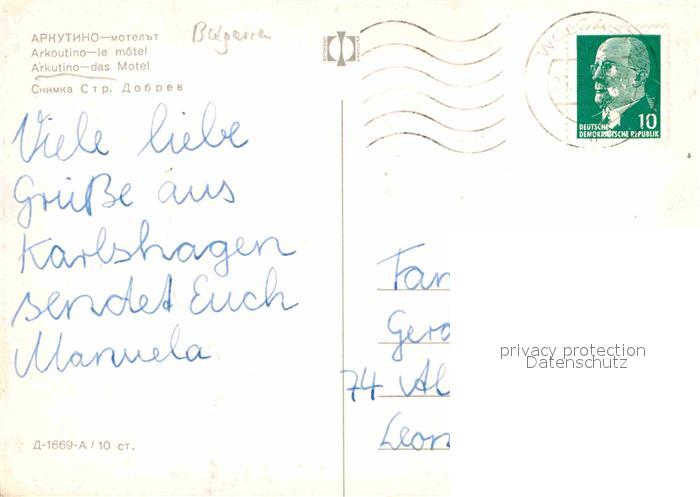 АРКУТИНО—мотелът
Arkoutino—le môtel
Arkutino—das Motel
Снимка Стр. Добрев
Bulgarien
DEUTSCHE
DEMOKRATISCHE REPUBLIK
10
Viele liebe
Grüße aus
Karlshagen
sendet Euch
Manuela
Fam
Gera
74 Al
Leon
privacy protection
Datenschutz
Д-1669-А / 10 ст.